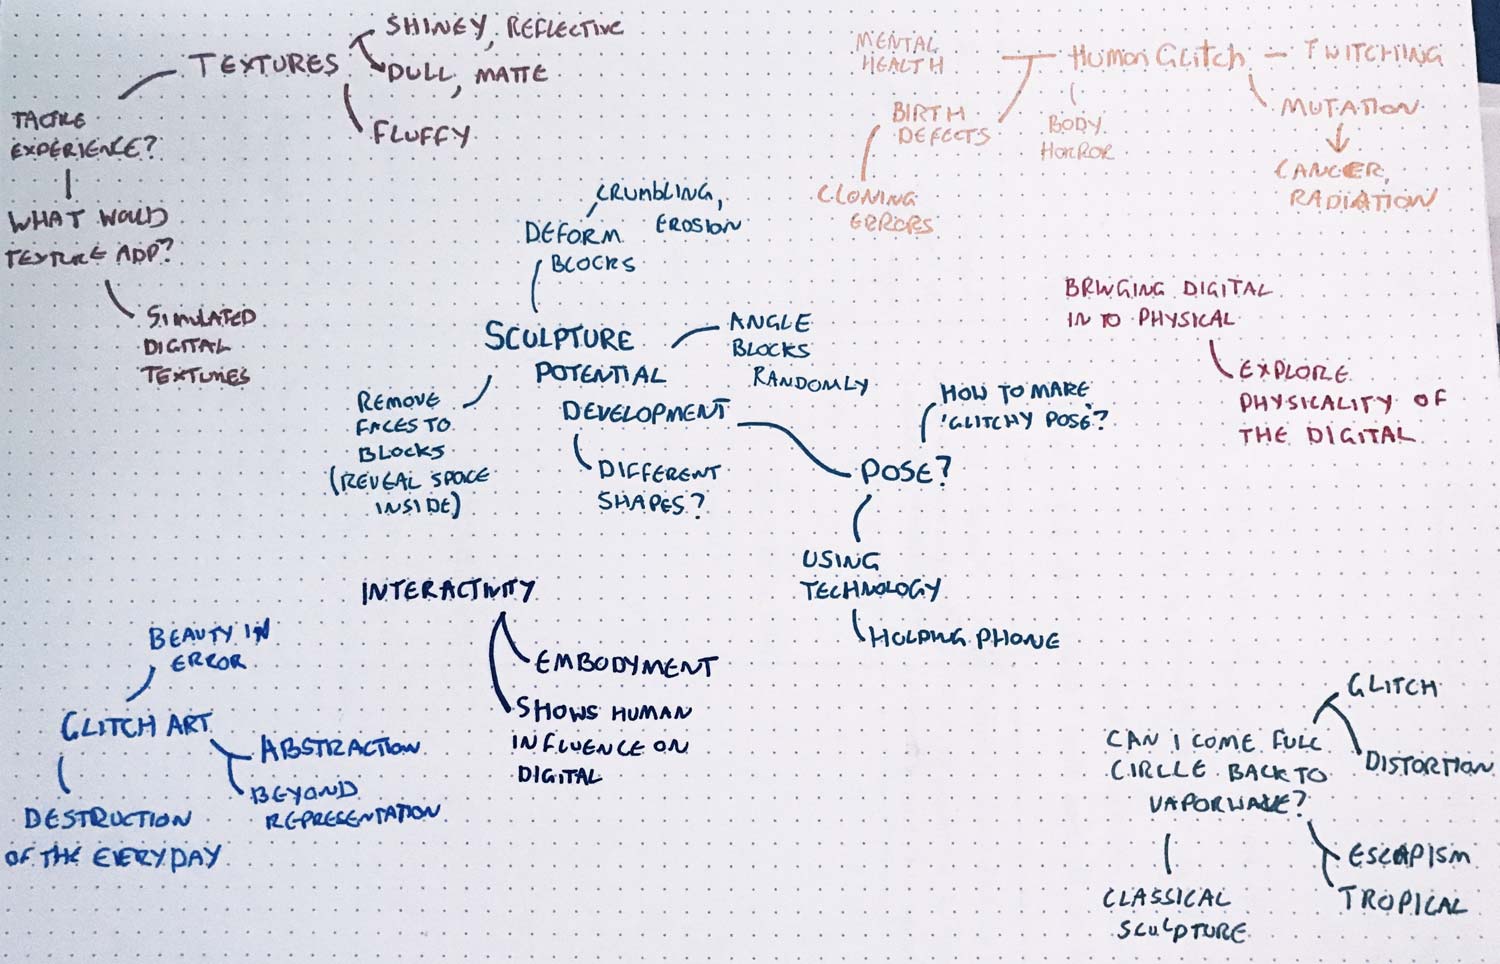 TEXTURES
SHINEY, REFLECTIVE
DULL, MATTE
FLUFFY
TACTILE
EXPERIENCE?
WHAT WOULD
TEXTURE ADD?
SIMULATED
DIGITAL
TEXTURES
MENTAL
HEALTH
HUMAN GLITCH - TWITCHING
BIRTH
DEFECTS
BODY
HORROR
MUTATION
CANCER,
RADIATION
CLONING
ERRORS
CRUMBLING,
EROSION
DEFORM
BLOCKS
SCULPTURE
POTENTIAL
DEVELOPMENT
ANGLE
BLOCKS
RANDOMLY
REMOVE
FACES TO
BLOCKS
(REVEAL SPACE
INSIDE)
DIFFERENT
SHAPES?
HOW TO MAKE
'GLITCHY POSE'?
POSE?
USING
TECHNOLOGY
HOLDING PHONE
BRINGING DIGITAL
IN TO PHYSICAL
EXPLORE
PHYSICALITY OF
THE DIGITAL
INTERACTIVITY
EMBODYMENT
SHOWS HUMAN
INFLUENCE ON
DIGITAL
BEAUTY IN
ERROR
GLITCH ART
ABSTRACTION
BEYOND
REPRESENTATION
DESTRUCTION
OF THE EVERYDAY
GLITCH
DISTORTION
CAN I COME FULL
CIRCLE BACK TO
VAPORWAVE?
ESCAPISM
TROPICAL
CLASSICAL
SCULPTURE